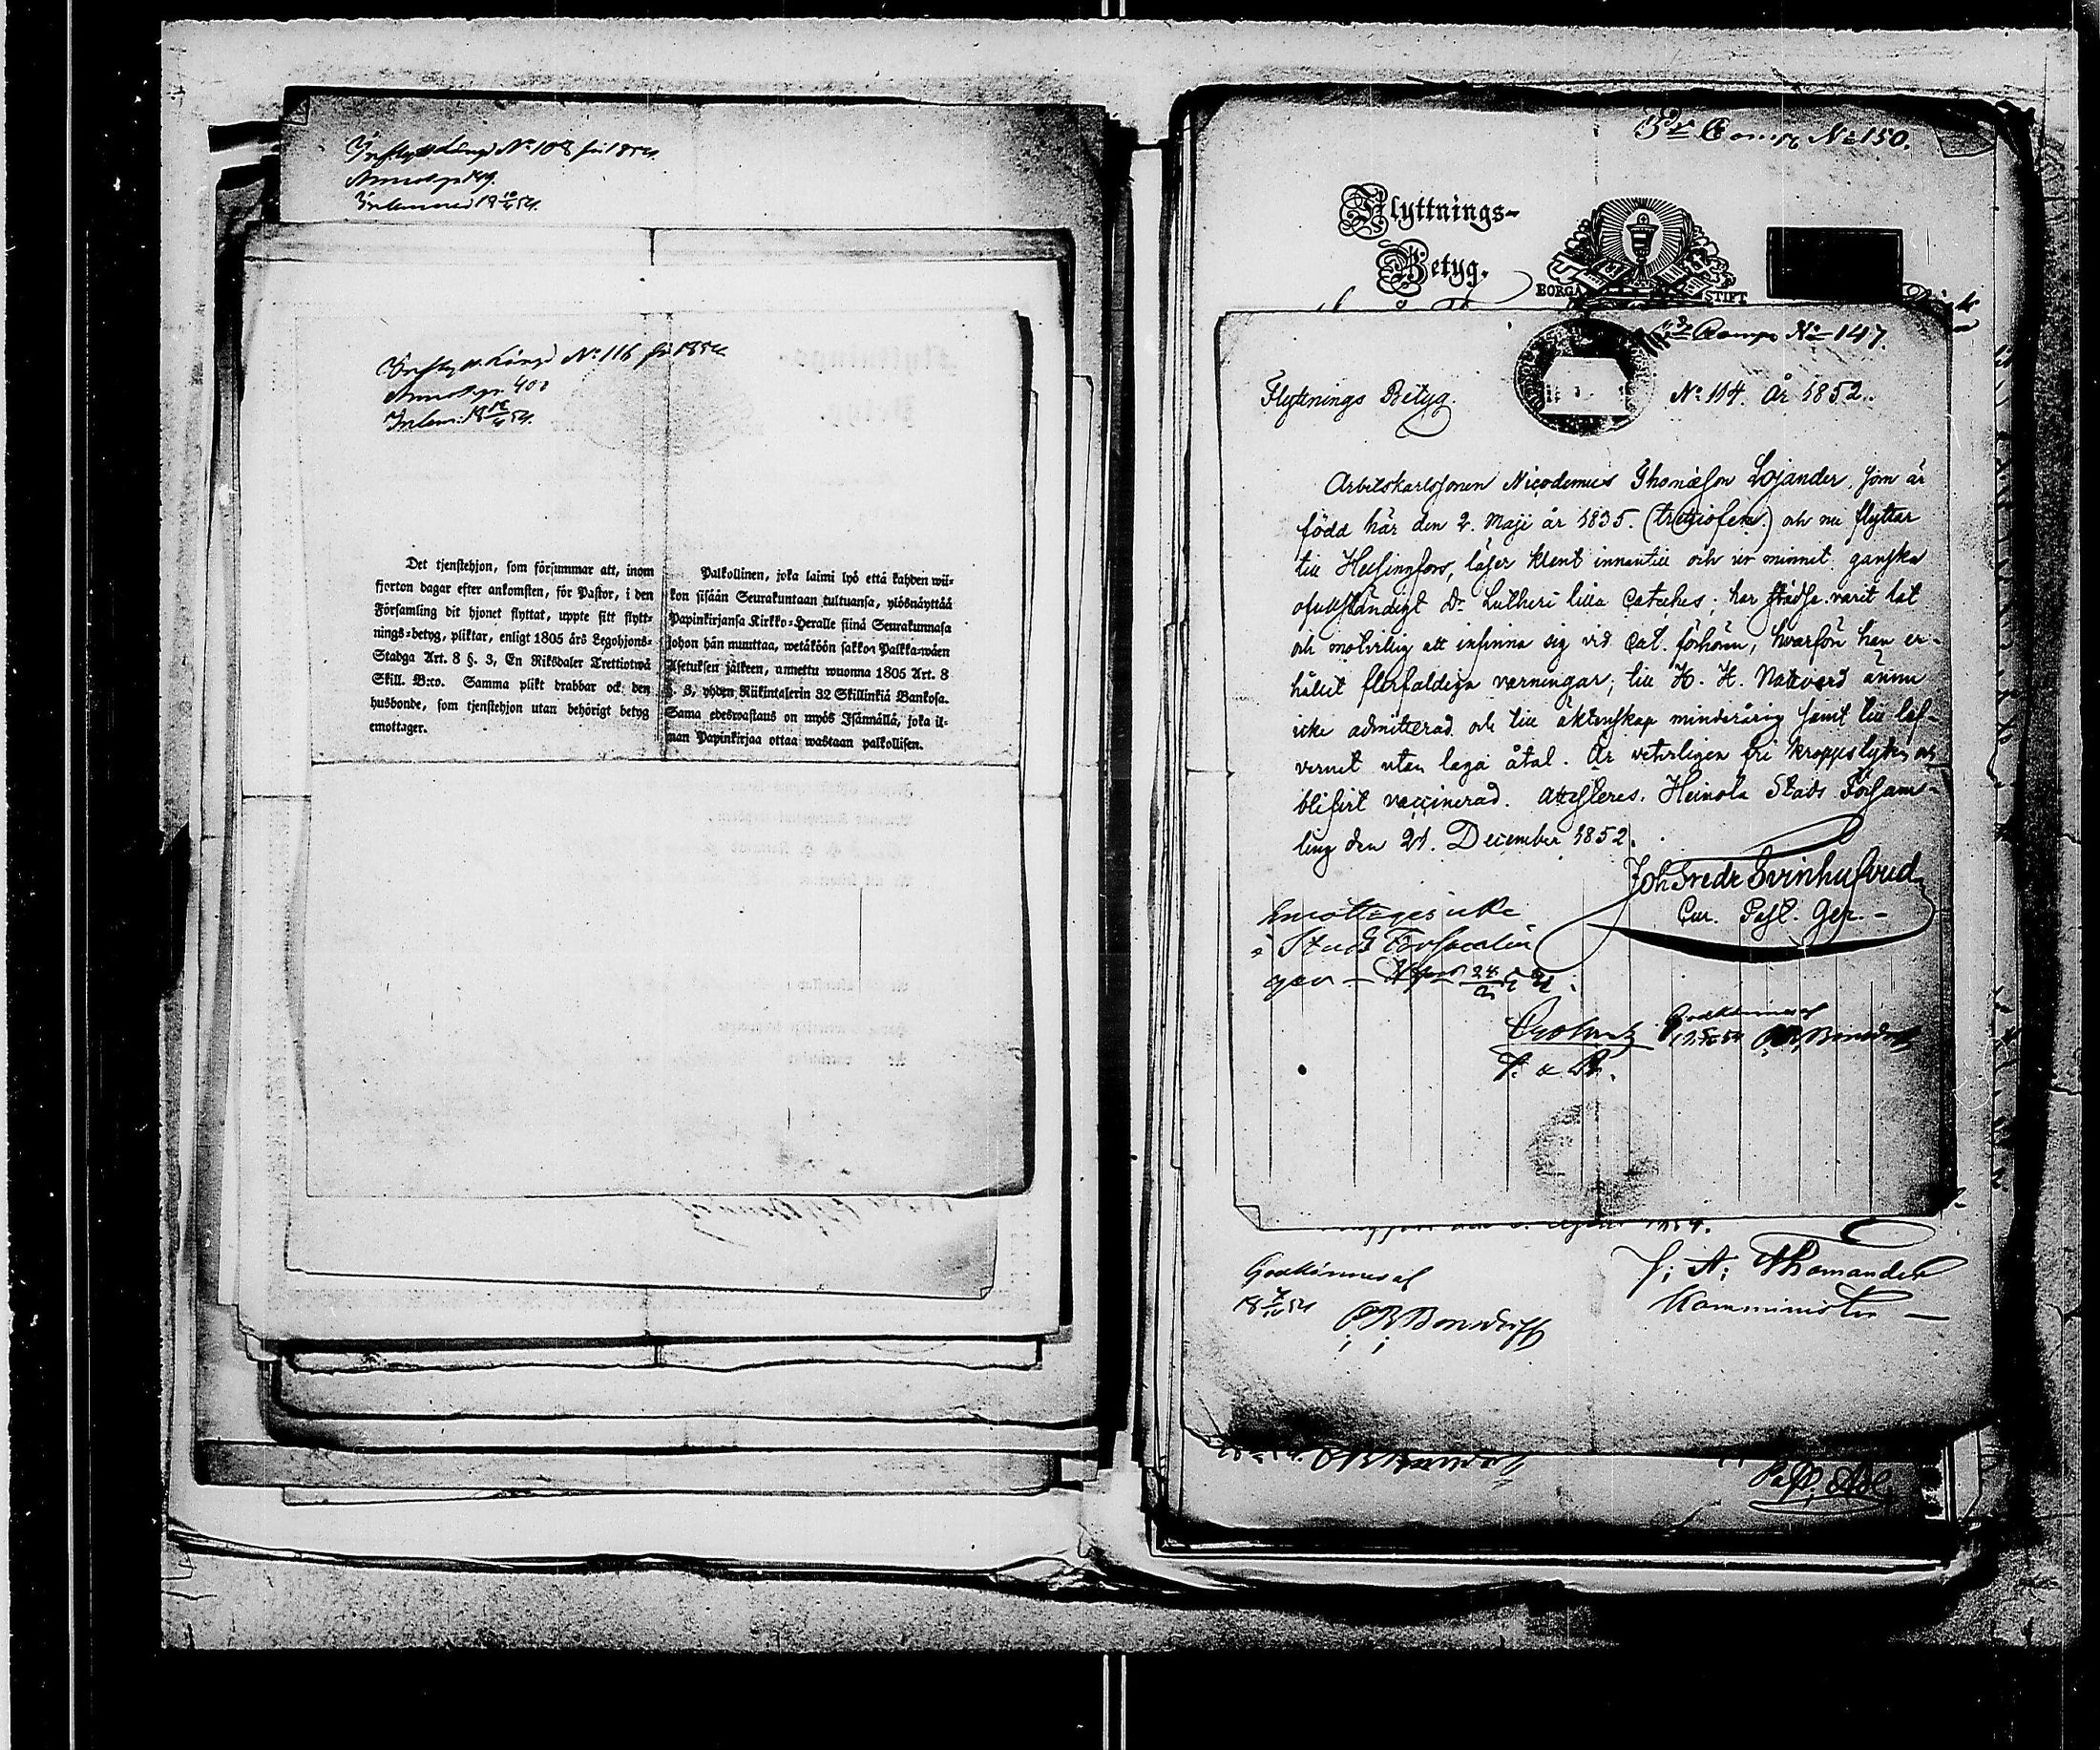 Inflytt. Längd No 108 för 1854.
Annot. p 149.
Inlemnad 18 10/4 54.
Inflytt. Längd No 116 för 1854
Annot. pr. 400
Inlem. 18 /4 54.
Det tjenstehjon, som försummar att, inom
fjorton dagar efter ankomsten, för Pastor, i den
Församling dit hjonet flyttat, uppte sitt flytt-
nings-betyg, pliktar, enligt 1805 års Legohjons-
Stadga Art. 8 §. 3, En Riksdaler Trettiotwå
Skill. B:co. Samma plikt drabbar ock den
husbonde, som tjenstehjon utan behörigt betyg
emottager.
Palkollinen, joka laimi lyö että kahden wii-
kon sisään Seurakuntaan tultuansa, ylösnäyttää
Papinkirjansa Kirkko-Heralle siinä Seurakunnasa
johon hän muuttaa, wetäköön sakkoa Palkka-wäen
Asetuksen jälkeen, annettu wuonna 1805 Art. 8
§. 3, yhden Riikintalerin 32 Skillinkiä Bankosa.
Sama edeswastaus on myös Isännällä, joka il-
man Papinkirjaa ottaa wastaan palkollisen.
3dje Comp No 150.
Flyttnings-
Betyg.
BORGÅ STIFT
Comp. No 147.
Flyttnings Betyg. No 114. År 1852.
Arbetskarlssonen Nicodemus Thomæson Lojander, som är
född här den 2. Maji år 1835. (trettiofem) och nu flyttar
till Helsingfors, läser klent innantill och ur minnet ganska
ofullständigt Dr Lutheri lilla Cateches; har städse varit lat
och motvillig att infinna sig vid Cat. förhören, hvarför han er-
hållit flerfaldiga varningar; till H. H. Nattvard ännu
icke admitterad och till äktenskap minderårig samt till lef-
vernet utan laga åtal. Är veterligen fri kroppslyten och
blifvit vaccinerad. Attesteras. Heinola Stads Försam-
ling den 21. December 1852.
Joh Fredr Svinhufvud
Cur. Past. Ger.
Emottages icke
i Stads Församlin
gen
Godkännes af
Bonsdorff
1854.
Godkännes af
18 7/4 54
Bonsdorff
J. A. Thomander
Komminister
Bonsdorff